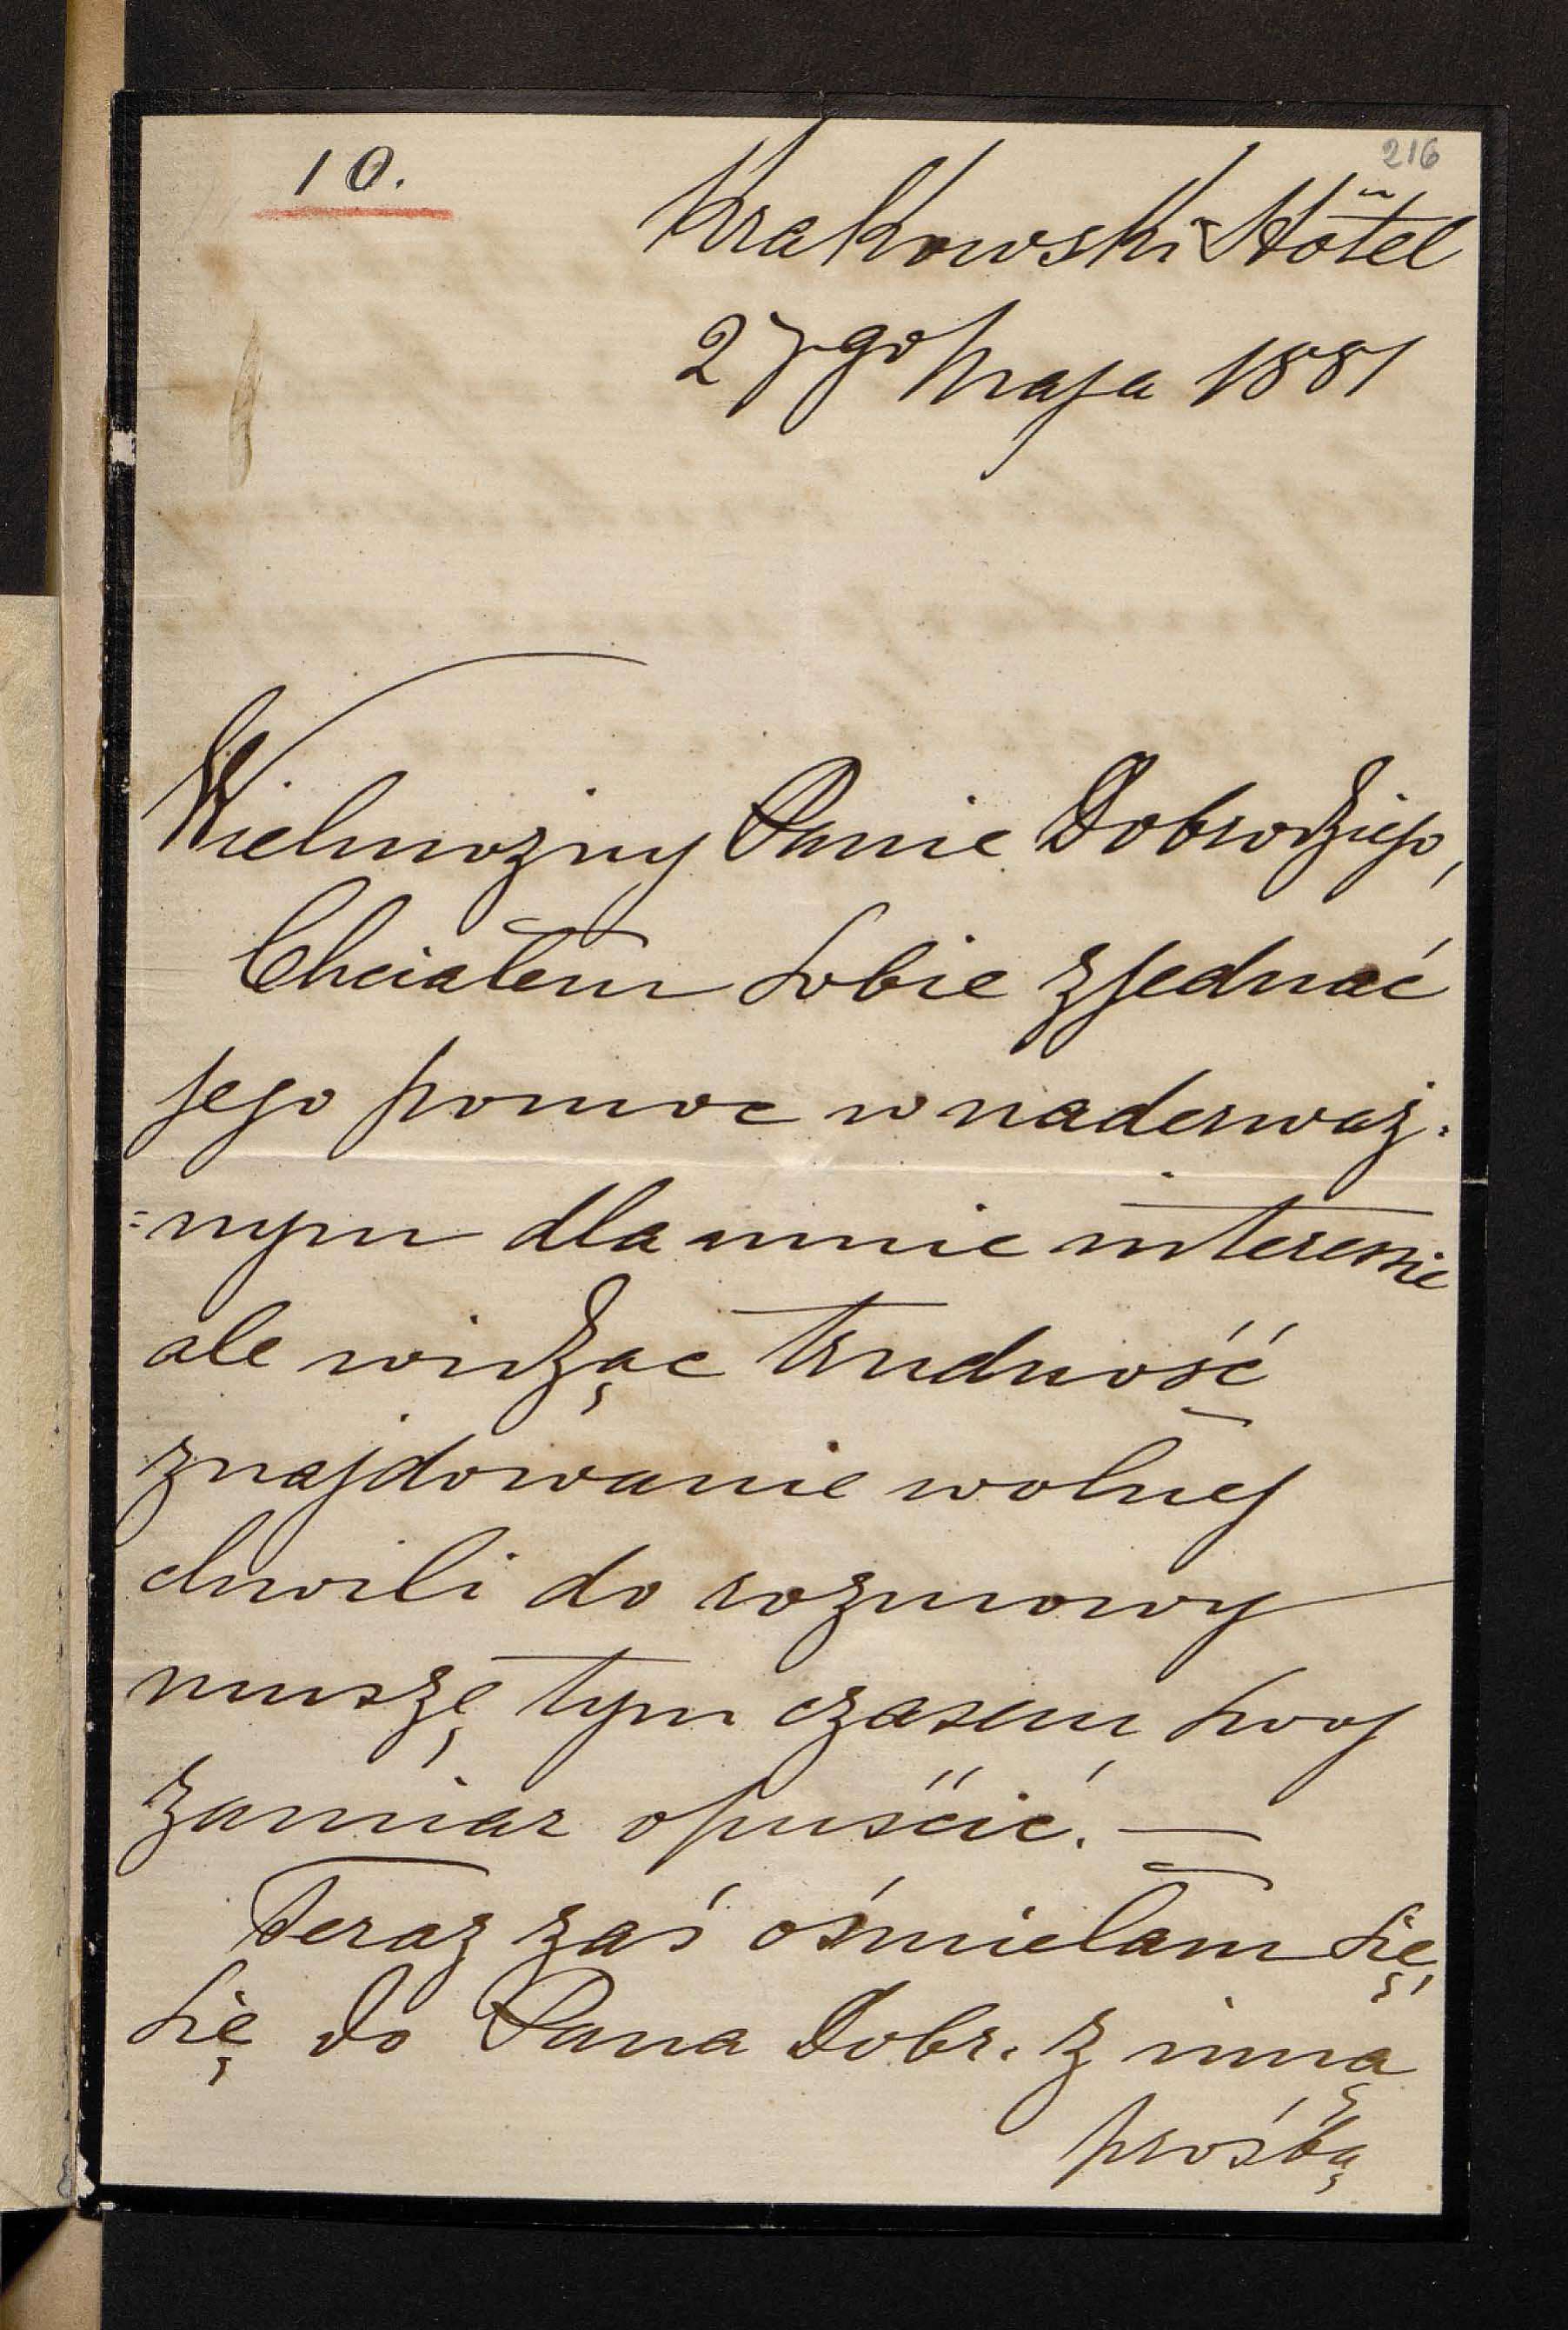 10.
216
Krakowski Hôtel
27go Maja 1881
Wielmożny Panie Dobrodzieju,
Chciałem sobie zjednać
jego pomoc w naderważ-
=nym dla mnie interessie
ale widząc trudność
znajdowanie wolnej
chwili do rozmowy
muszę tym czasem swoj
zamiar opuścić. —
Teraz zaś ośmielam się
się do Pana Dobr. z inną
prośbą